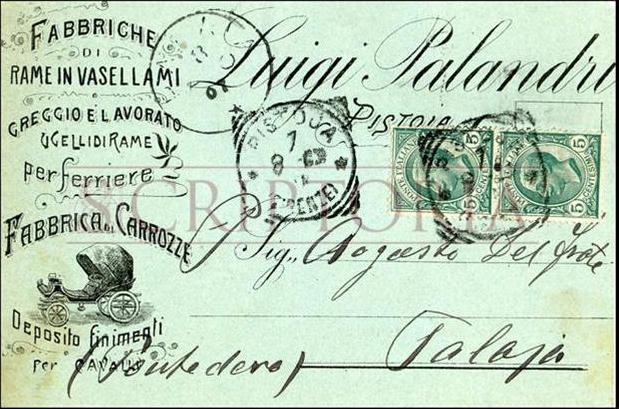 FABBRICHE
DI
RAME IN VASELLAMI
GREGGIO E LAVORATO
UGELLI DI RAME
per ferriere
FABBRICA DI CARROZZE
Deposito finimenti
per CAVALLI
Luigi Palandri
PISTOIA
PISTOJA
7
(FIRENZE)
POSTE ITALIANE
5
CENTES
5
5
CENTES
5
SCRIPTORIA
Sig. Augusto Del Prete
Palaja
(Pontedera)